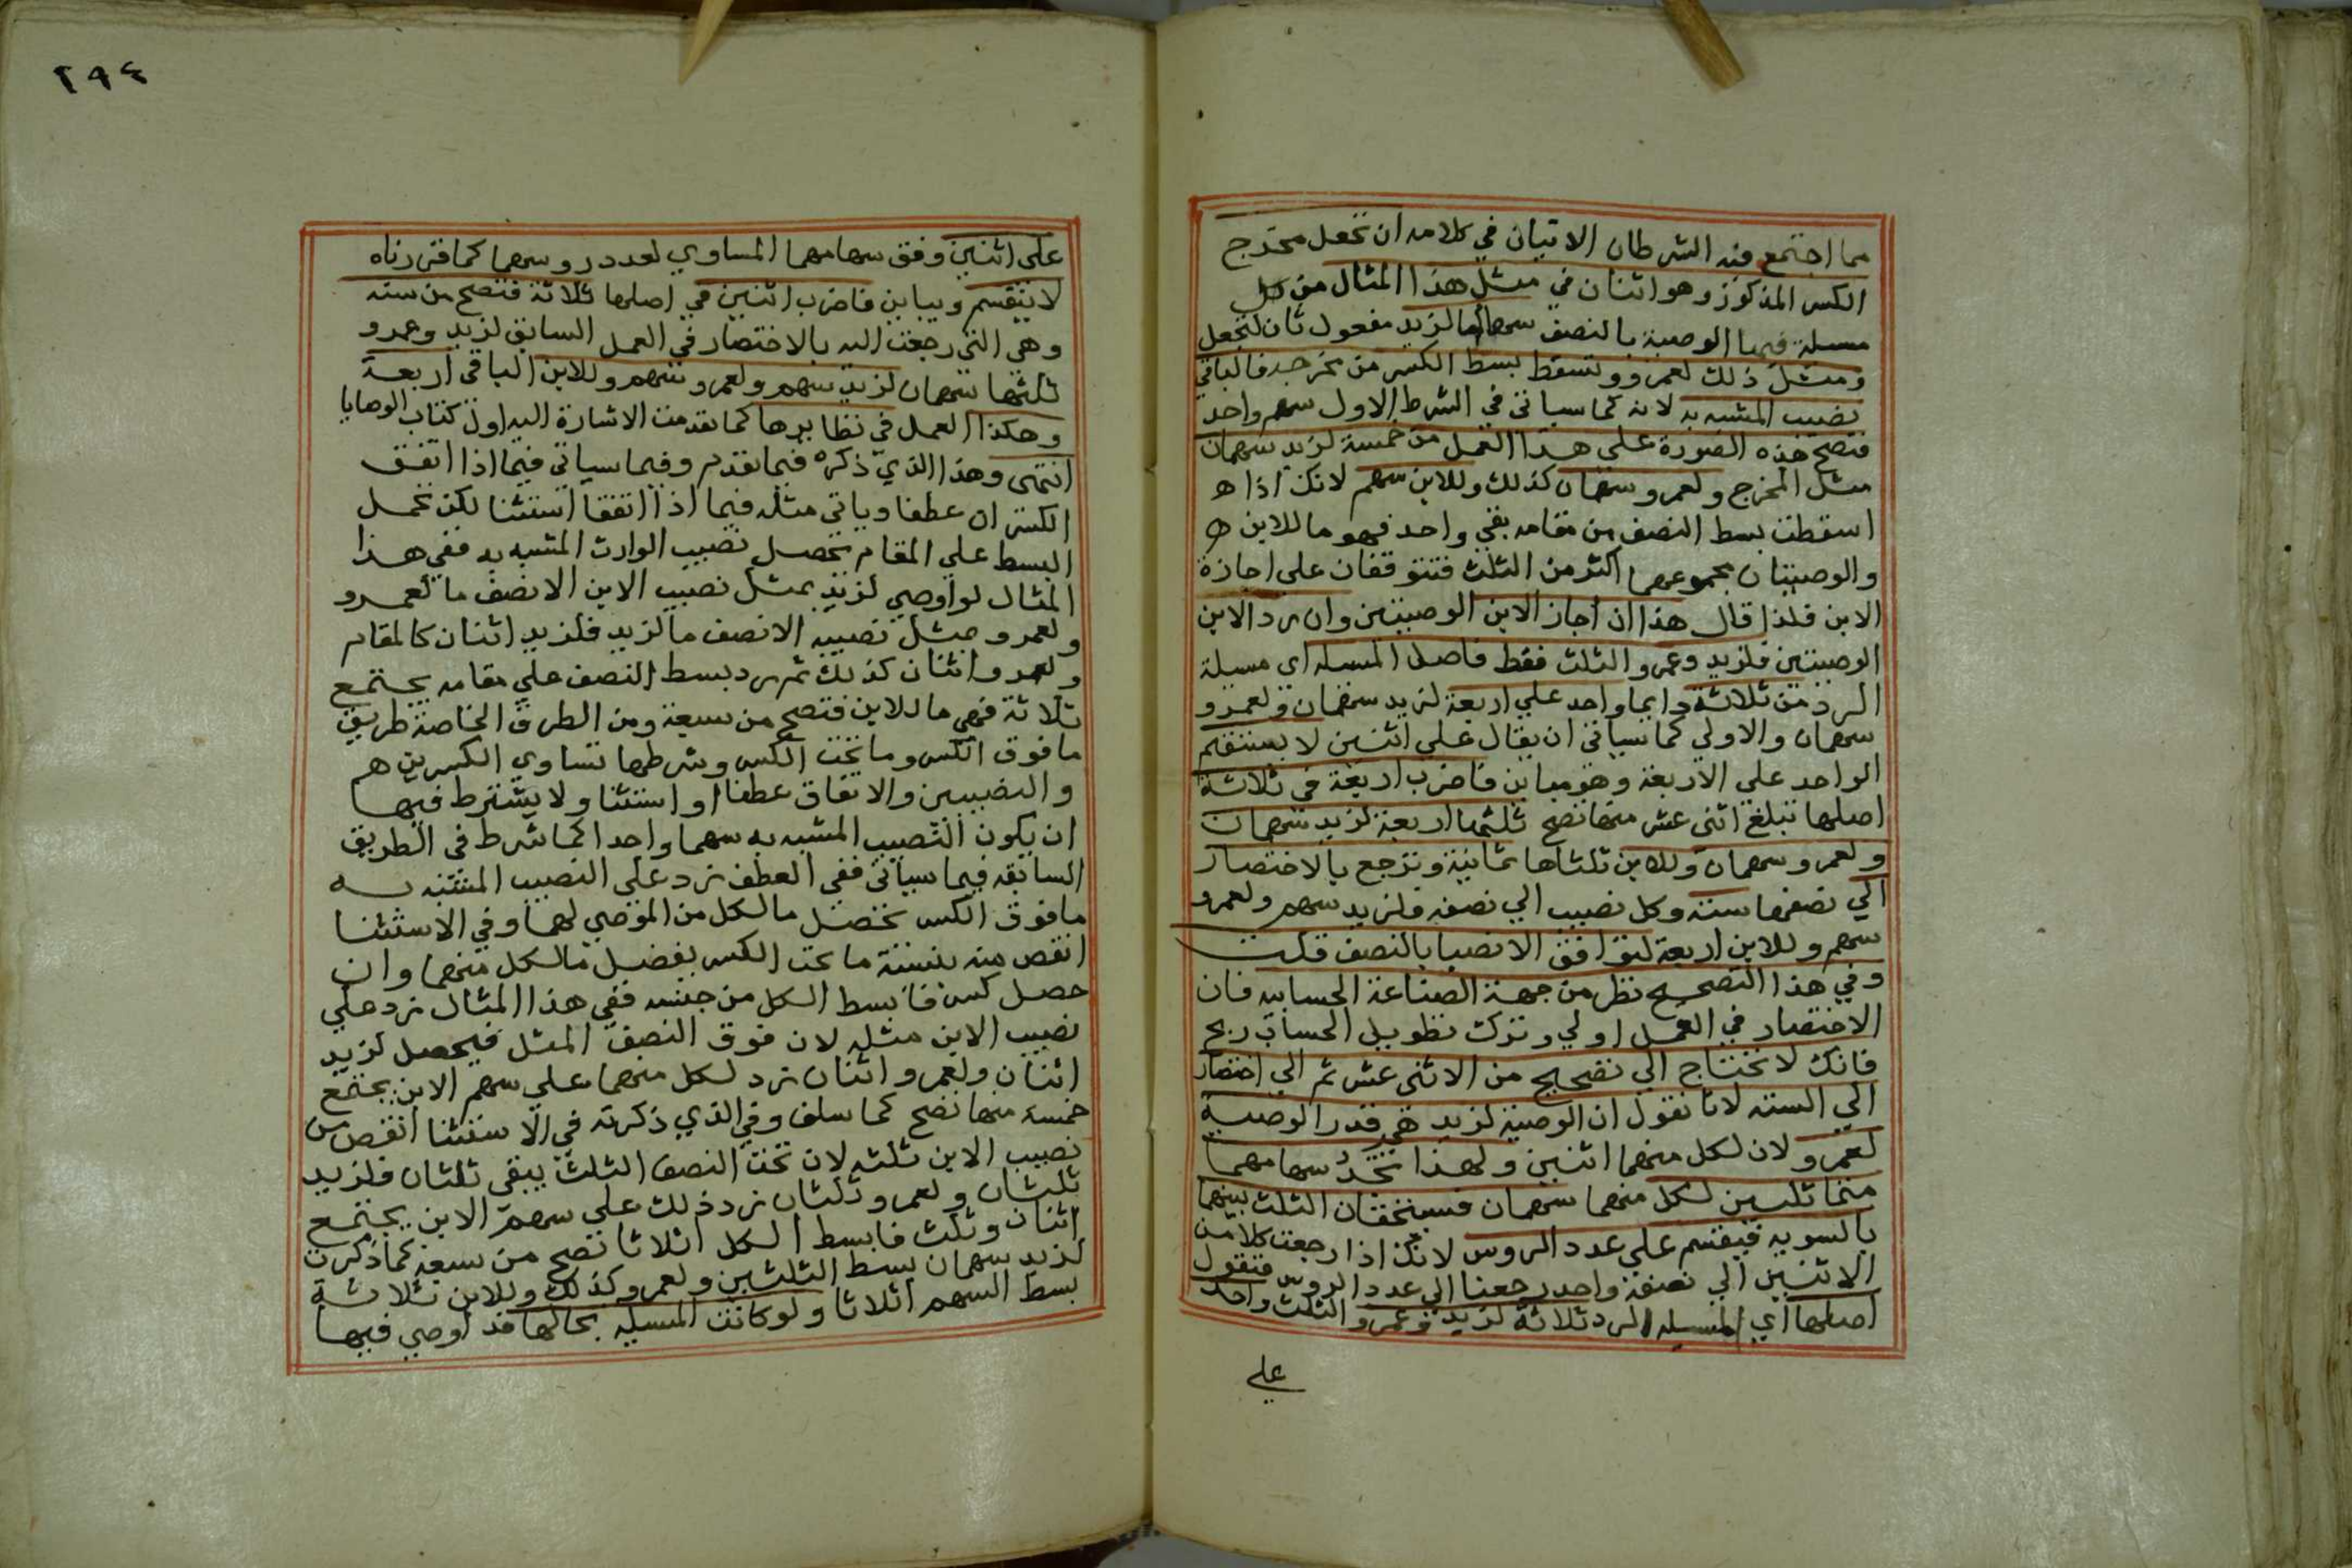 مما اجتمع فيه الشرطان الاتيان في كلامه ان تجعل مخرج
الكسر المذكور وهو اثنان في مثل هذا المثال من كل
مسلة فيها الوصية بالنصف سهما لزيد مفعول ثان لتجعل
ومثل ذلك لعمرو وتسقط بسط الكسر من مخرجه فالباقي
نصيب المشبه به لانه كما سياتي في الشرط الاول سهم واحد
فتصح هذه الصورة على هذا العمل من خمسة لزيد سهمان
مثل المخرج ولعمرو سهمان كذلك وللابن سهم لانك اذا ه
اسقطت بسط النصف من مقامه بقي واحد فهو ما للابن ه
والوصيتان مجموعهما اكثر من الثلث فتتوقفان على اجازة
الابن فلذا قال هذا ان اجاز الابن الوصيتين وان رد الابن
الوصيتين فلزيد وعمرو الثلث فقط فاصل المسله اي مسيلة
الرد من ثلاثة دايما واحد علي اربعة لزيد سهمان ولعمرو
سهمان والاولي كما سياتي ان يقال علي اثنين لا يستقيم
الواحد علي الاربعة وهو مباين فاضرب اربعة في ثلاثة
اصلها تبلغ اثني عشر منها تصح ثلثها اربعة لزيد سهمان
ولعمرو سهمان وللابن ثلثاها ثمانية وترجع بالاختصار
الي نصفها ستة وكل نصيب الي نصفه فلزيد سهم ولعمرو
سهم وللابن اربعة لتوافق الانصبا بالنصف قلت
وفي هذا التصحيح نظر من جهة الصناعة الحسابيه فان
الاختصار في العمل اولي وترك تطويل الحساب ربح
فانك لا تحتاج الي تصحيح من الاثني عشر ثم الي اختصار
الي السته لانا نقول ان الوصية لزيد هي قدر الوصية
لعمرو لان لكل منهما اثنين ولهذا تجد سهامهما
متماثلين لكل منهما سهمان فيستحقان الثلث بينهما
بالسويه فيقسم علي عدد الروس لانك اذا رجعت كلا من
الاثنين الي نصفه واحد رجعنا الي عدد الروس فتقول
اصلها اي المسيله الرد ثلاثة لزيد وعمرو الثلث واحد
علي
٢٩٤
على اثنين وفق سهامهما المساوي لعدد روسهما كما قررناه
لا ينقسم ويباين فاضرب اثنين في اصلها ثلاثة فتصح من سته
وهي التي رجعت اليه بالاختصار في العمل السابق لزيد وعمرو
ثلثها سهمان لزيد سهم ولعمرو سهم وللابن الباقي اربعة
وهكذا العمل في نظايرها كما تقدمت الاشارة اليه اول كتاب الوصايا
انتهى وهذا الذي ذكره فيما تقدم وفيما سياتي فيما اذا اتفق
الكسران عطفا وياتي مثله فيما اذا اتفقا استثنا لكن تحمل
البسط علي المقام تحصل نصيب الوارث المشبه به ففي هذا
المثال لو اوصي لزيد بمثل نصيب الابن الا نصف ما لعمرو
ولعمرو بمثل نصيبه الا نصف ما لزيد فلزيد اثنان كالمقام
ولعمرو اثنان كذلك ثم زد بسط النصف علي مقامه يجتمع
ثلاثة فهي ما للابن فتصح من سبعة ومن الطرق الخاصة طريق
ما فوق الكسر وما تحت الكسر وشرطها تساوي الكسرين هم
والنصيبين والاتفاق عطفا او استثنا ولا يشترط فيها
ان يكون النصيب المشبه به سهما واحدا كما شرط في الطريق
السابقه فيما سياتي ففي العطف زد على النصيب المشبه به
ما فوق الكسر تحصل ما لكل من الموصي لهما وفي الاستثنا
انقص منه بنسبة ما تحت الكسر يفضل ما لكل منهما وان
حصل كسر فابسط الكل من جنسه ففي هذا المثال زد علي
نصيب الابن مثله لان فوق النصف المثل فيحصل لزيد
اثنان ولعمرو اثنان زد لكل منهما علي سهم الابن يجتمع
خمسة منها تصح كما سلف وفي الذي ذكرته في الاستثنا انقص من
نصيب الابن ثلثه لان تحت النصف الثلث يبقي ثلثان فلزيد
ثلثان ولعمرو ثلثان زد ذلك علي سهم الابن يجتمع
اثنان وثلث فابسط الكل اثلاثا تصح من سبعة كما ذكرت
لزيد سهمان بسط الثلثين ولعمرو كذلك وللابن ثلاثة
بسط السهم اثلاثا ولو كانت المسيله بحالها قد اوصي فيها